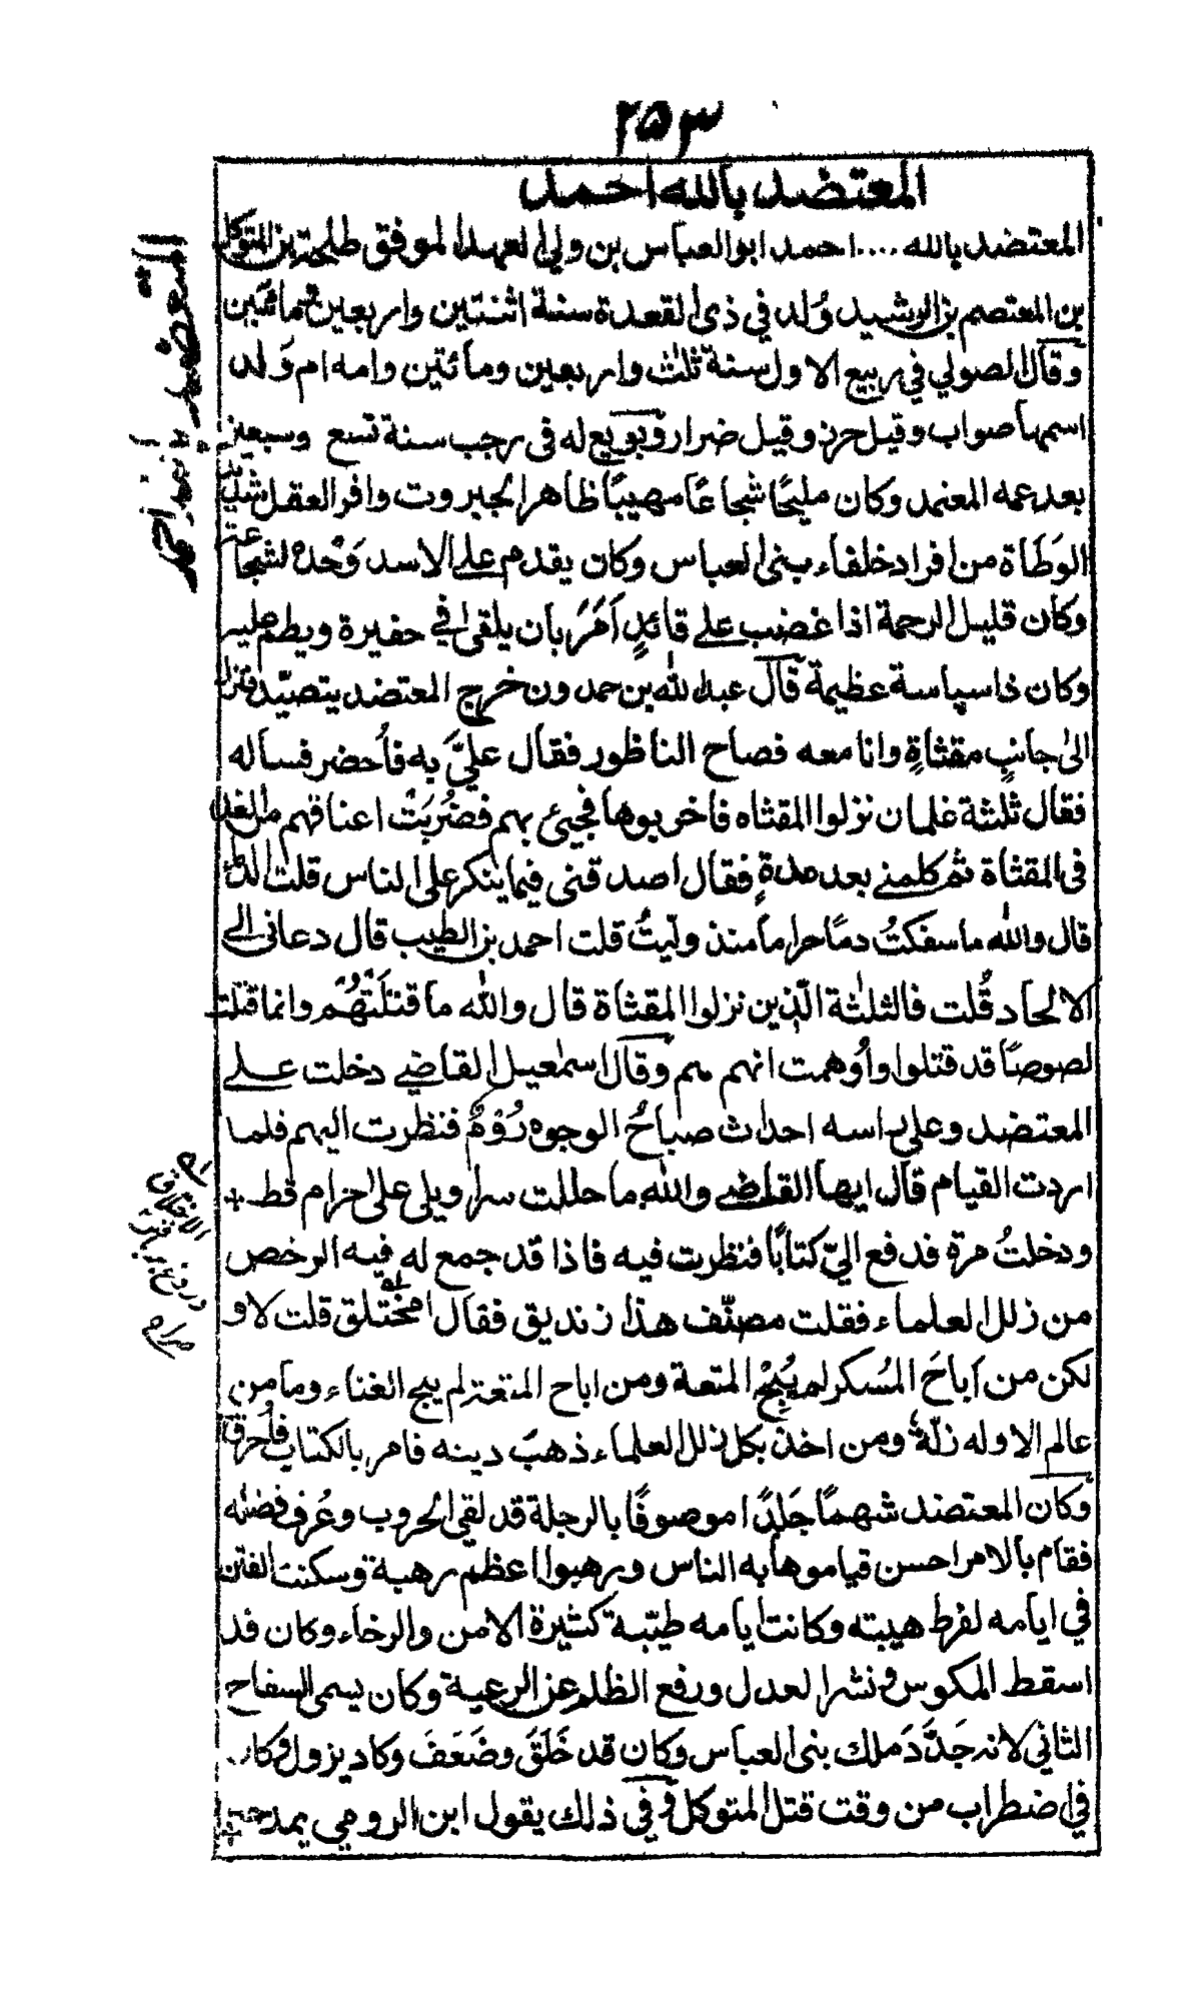 ۲۵۳
المعتضد بالله احمد
المعتضد بالله .... احمد ابو العباس بن ولي العهد الموفق طلحة بن المتوكل
بن المعتصم بن الرشيد وُلد في ذي القعدة سنة اثنتين واربعين ومائتين
وقال الصولي في ربيع الاول سنة ثلٰث واربعين ومائتين وامه ام وَلد
اسمها صواب وقيل حرز وقيل ضرار وبويع له في رجب سنة تسع وسبعين
بعد عمه المعتمد وكان مليحًا شجاعًا مهيبًا ظاهر الجبروت وافر العقل شديد
الوَطَاة من افراد خلفاء بني العباس وكان يقدم علے الاسد وَحْدہ لشجاعته
وكان قليل الرحمة اذا غضب علے قائدٍ اَمَرَ بان يلقى في حفيرة ويطم عليه
وكان ذا سياسة عظيمة قال عبد الله بن حمدون خرج المعتضد يتصيّد فنزل
الىٰ جانب مقثاةٍ وانا معه فصاح الناظور فقال عليَّ به فاُحضر فساله
فقال ثلثة غلمان نزلوا المقثاه فاخربوها فجيئ بهم فضُرِبَتْ اعناقهم من الغد
في المقثاة ثم كلمنے بعد مدةٍ فقال اصدقني فيما ينكر على الناس قلت الدماء
قال والله ما سفكتُ دمًا حراما منذ وليتُ قلت احمد بن الطيب قال دعاني الے
الالحاد قُلت فالثلٰثة الّذين نزلوا المقثاة قال والله ما قتلتُهُم وانما قتلت
لصوصًا قد قتلوا واُوهمت انهم هم وقال اسمٰعيل القاضے دخلت علے
المعتضد وعلى راسه احداث صباحُ الوجوه رُوْمٌ فنظرت اليهم فلما
اردت القيام قال ايها القاضے والله ما حللت سراويلي على حرام قط
ودخلتُ مرة فدفع اليّ كتابًا فنظرت فيه فاذا قد جمع له فيه الرخص
من زلل العلماء فقلت مصنّف هذا زنديق فقال امختلق قلت لا و
لكن من اَباحَ المُسكر لم يُبِحْ المتعة ومن اباح المتعة لم يبح الغناء وما من
عالم الا وله زلّة ومن اخذ بكل زلل العلماء ذهبَ دينه فامر بالكتاب فاُحرق
وكان المعتضد شهمًا جَلدًا موصوفًا بالرجلة قد لقي الحروب وعُرف فضله
فقام بالامر احسن قيام وهابه الناس ورهبوا اعظم رهبة وسكنت الفتن
في ايامه لفرط هيبته وكانت ايامه طيّبة كثيرة الامن والرخاء وكان قد
اسقط المكوس ونشر العدل ورفع الظلم عن الرعية وكان يسمى السفاح
الثاني لانه جدَّدَ ملك بني العباس وكان قد خَلَقَ وضَعَفَ وكاد يزول وكان
في اضطراب من وقت قتل المتوكل وفي ذلك يقول ابن الرومي يمدحه
المعتضد بالله احمد